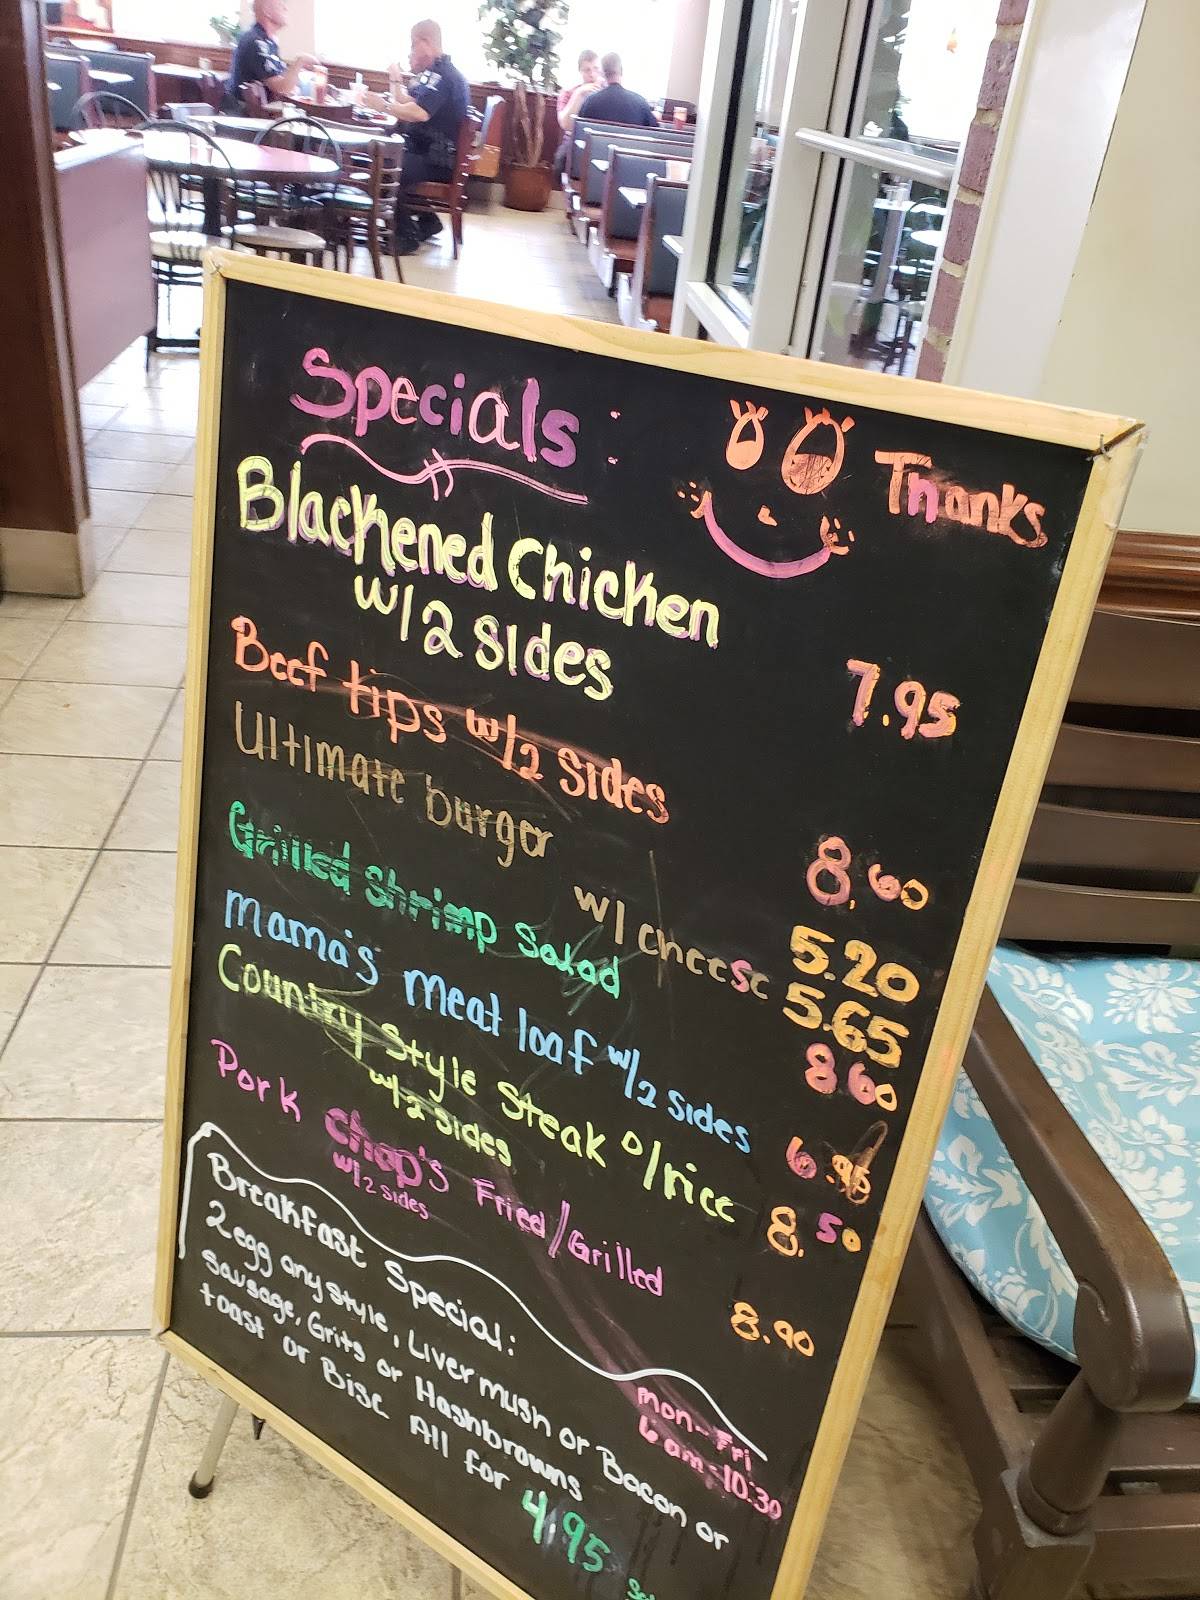 Specials: Thanks
Blackened Chicken
w/2 sides 7.95
Beef tips w/2 sides 8.60
Ultimate burger 5.20
w/ cheese 5.65
Grilled Shrimp Salad 8.60
mama's meat loaf w/2 sides 6.95
Country Style Steak o/rice 8.50
w/2 sides
Pork Chop's Fried/Grilled 8.90
w/2 sides
Breakfast Special: mon-Fri
6am-10:30
2 egg any style, Liver mush or Bacon or
Sausage, Grits or Hashbrowns
toast or Bisc All for 4.95